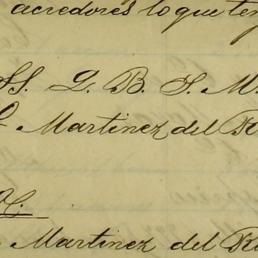 acredores lo que ten
SS. L. B. S. M.
Martinez del R
Martinez del R